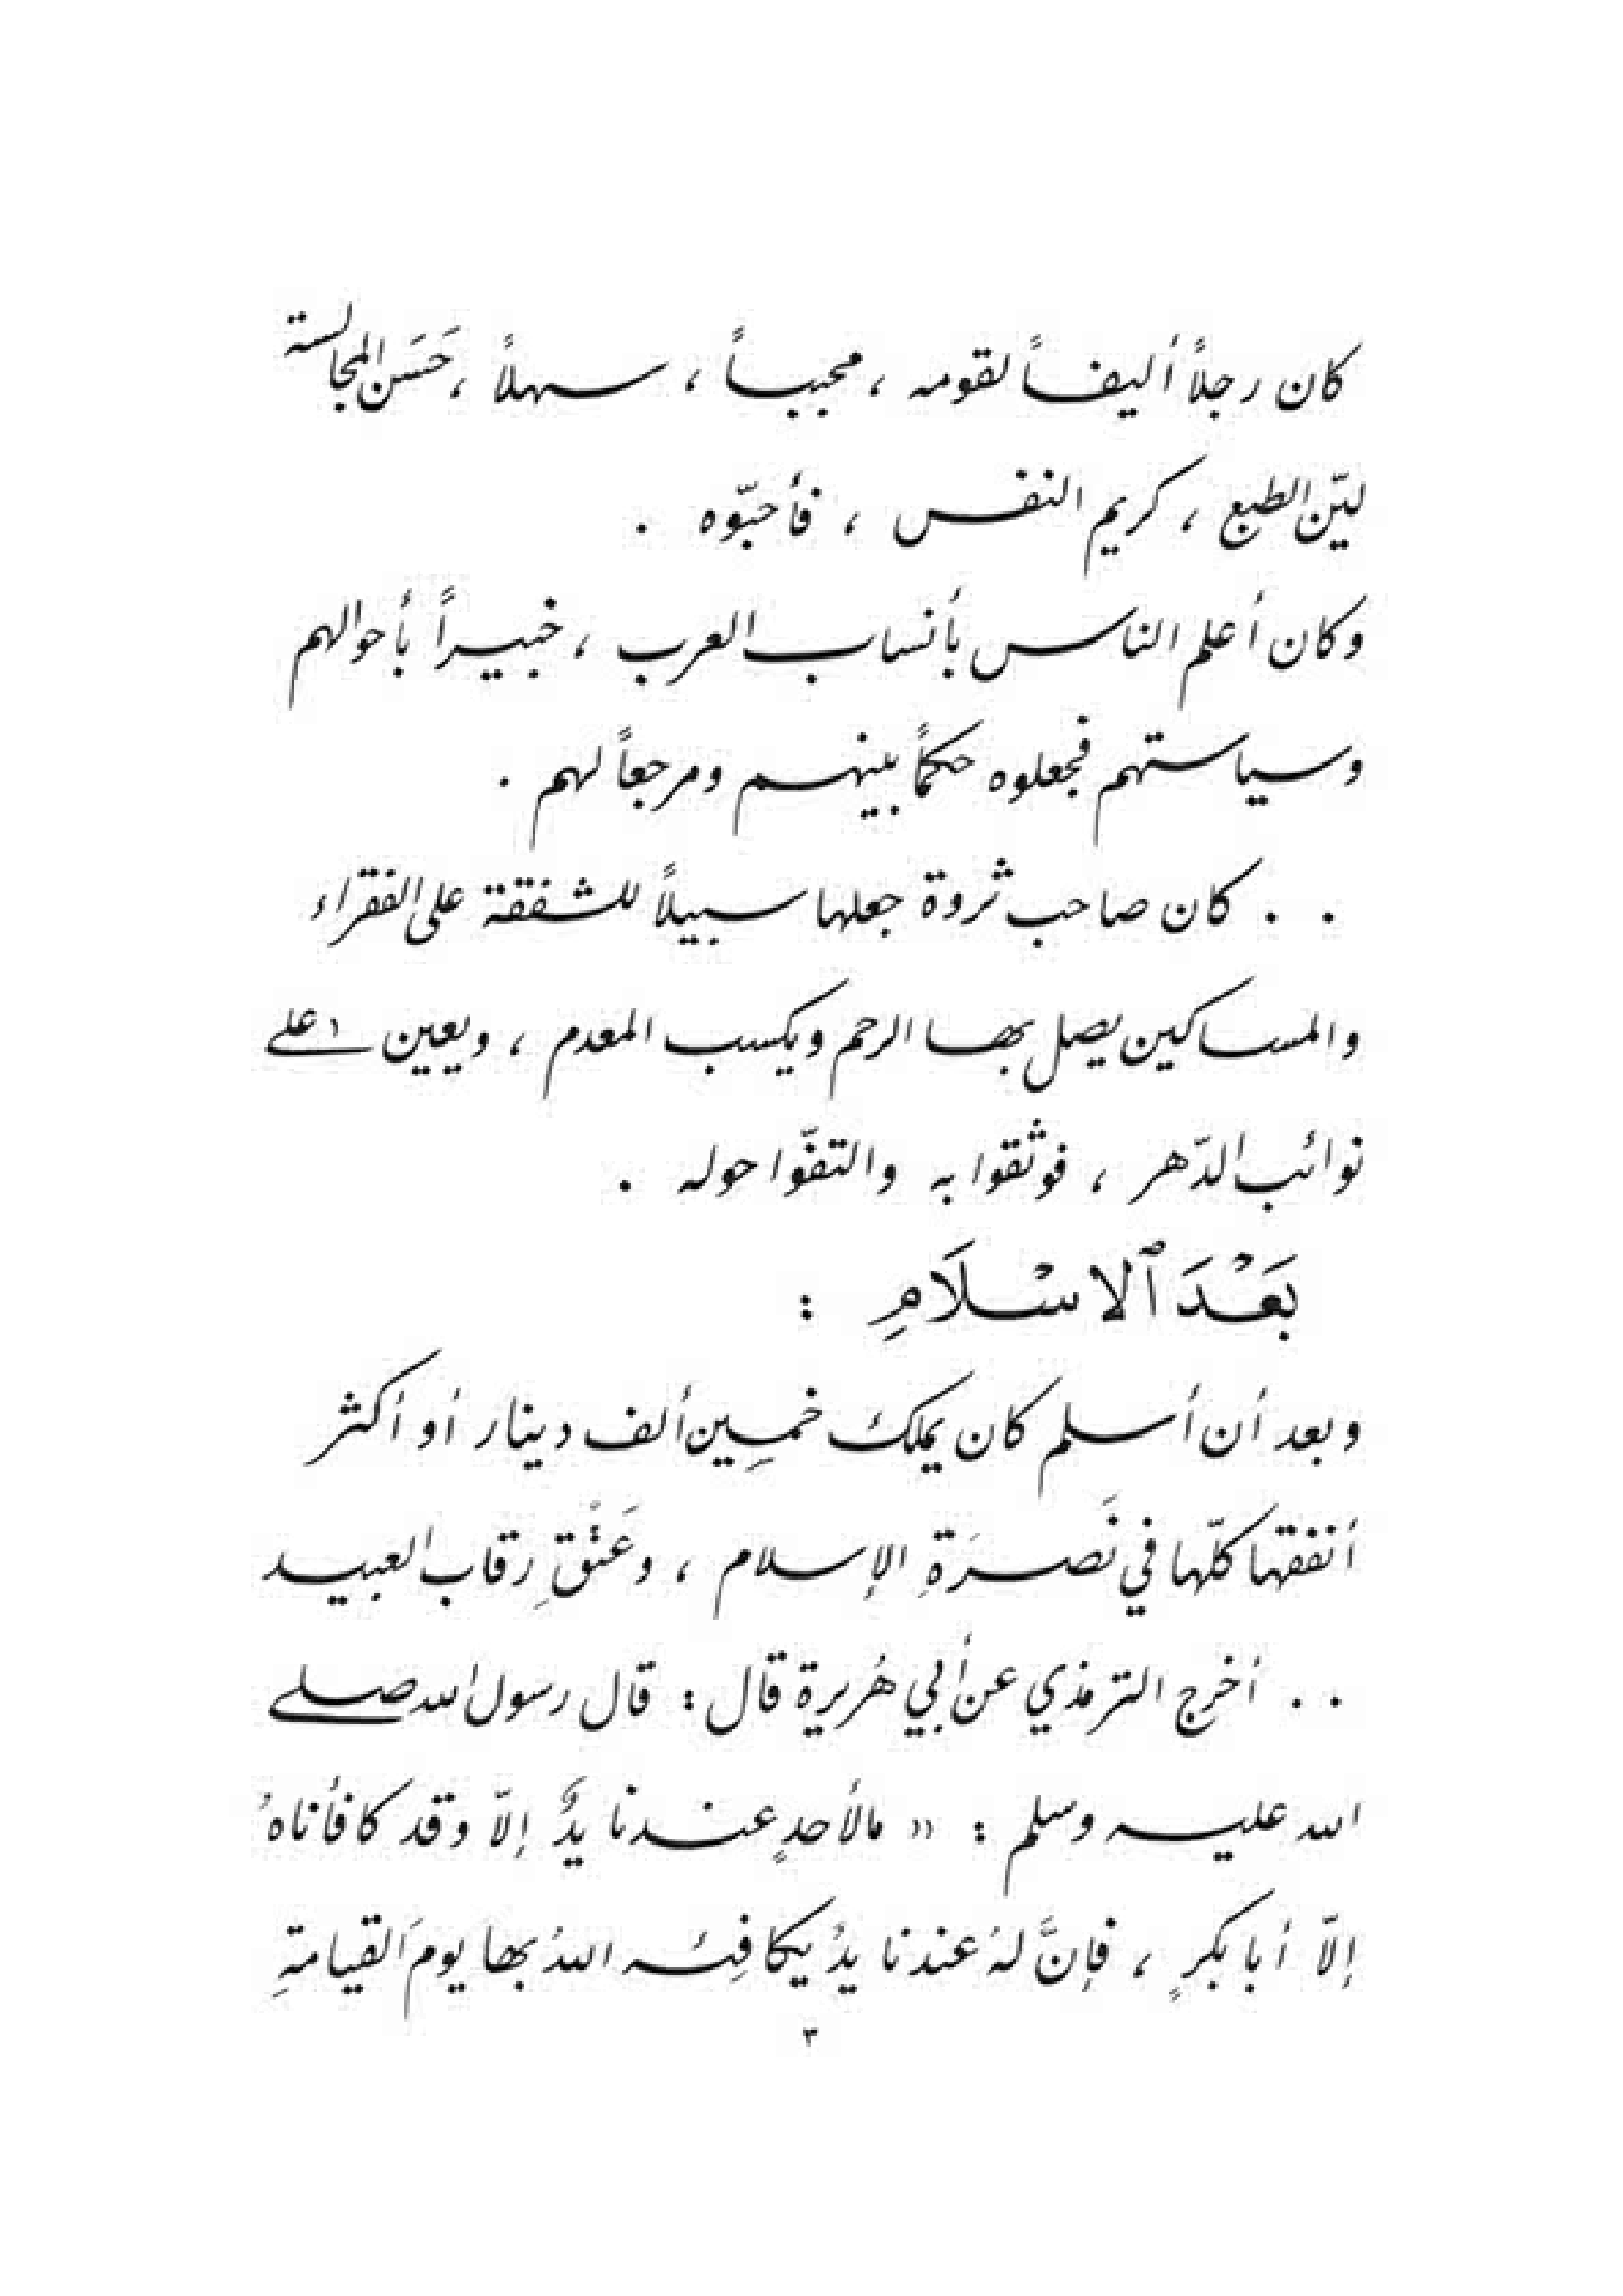 كان رجلاً أليفاً لقومه ، محبباً ، سهلاً ، حَسَن المجالسة
ليّن الطبع ، كريم النفس ، فأحبّوه .
وكان أعلم الناس بأنساب العرب ، خبيراً بأحوالهم
وسياستهم فجعلوه حكماً بينهم ومرجعاً لهم .
. . كان صاحب ثروة جعلها سبيلاً للشفقة على الفقراء
والمساكين يصل بها الرحم ويكسب المعدم ، ويعين على
نوائب الدّهر ، فوثقوا به والتفّوا حوله .
بَعْدَ ٱلاسْلَامِ :
وبعد أن أسلم كان يملك خمسِين ألف دينار أو أكثر
أنفقها كلّها في نَصرَةِ الإسلام ، وعَتْقِ رقاب العبيد
. . أخرِج الترمذي عن أبي هُريرة قال : قال رسول الله صلى
الله عليه وسلم : « مالأحدٍ عندنا يدٌ إلاّ وقد كافأناهُ
إلاّ أبا بكرٍ ، فإنَّ لهُ عندنا يدُ يكافِئه اللهُ بها يومَ القيامةِ
٣